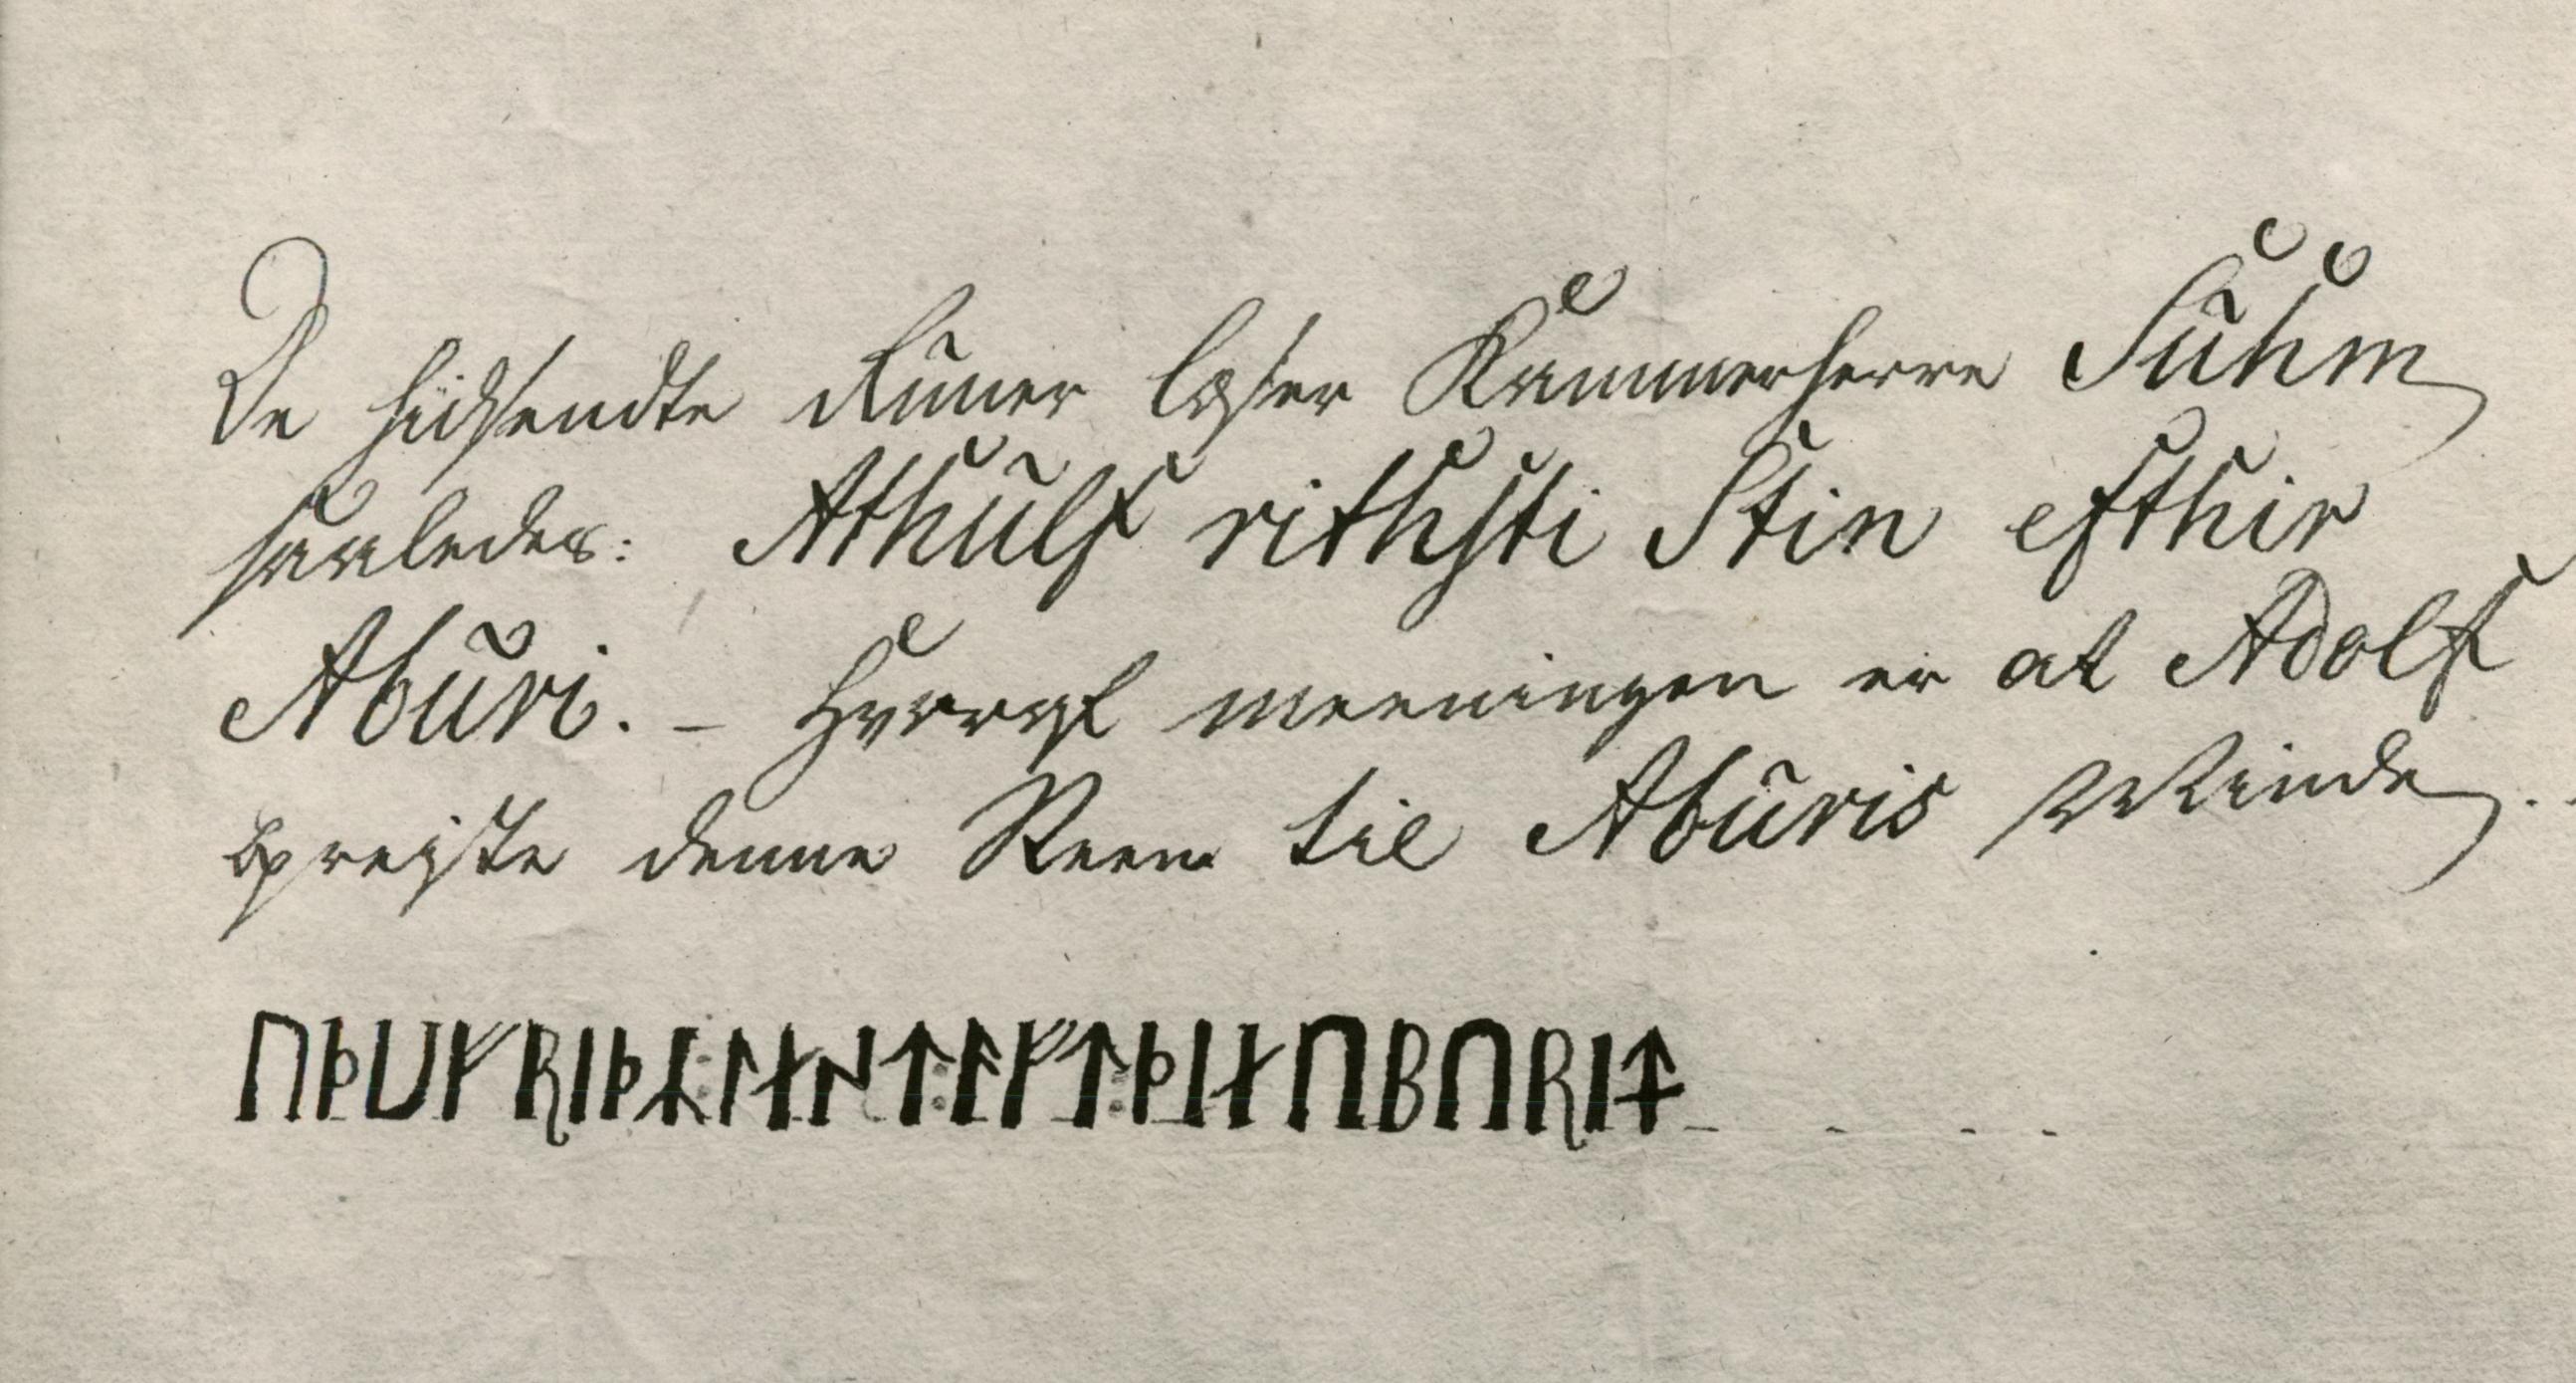 De hidsendte Runer læser Kammerherre Suhm
saaledes: Athulf rithsti Stin efthir
Aburi. – Hvoraf meeningen er at Adolf
opreiste denne Steen til Aburis Minde.
ᚢᚦᚢᚠᚱᛁᚦ ᛚᚾ ᛏᛆᚠᛏᚦᛁ ᚢᛒᚢᚱᛁ